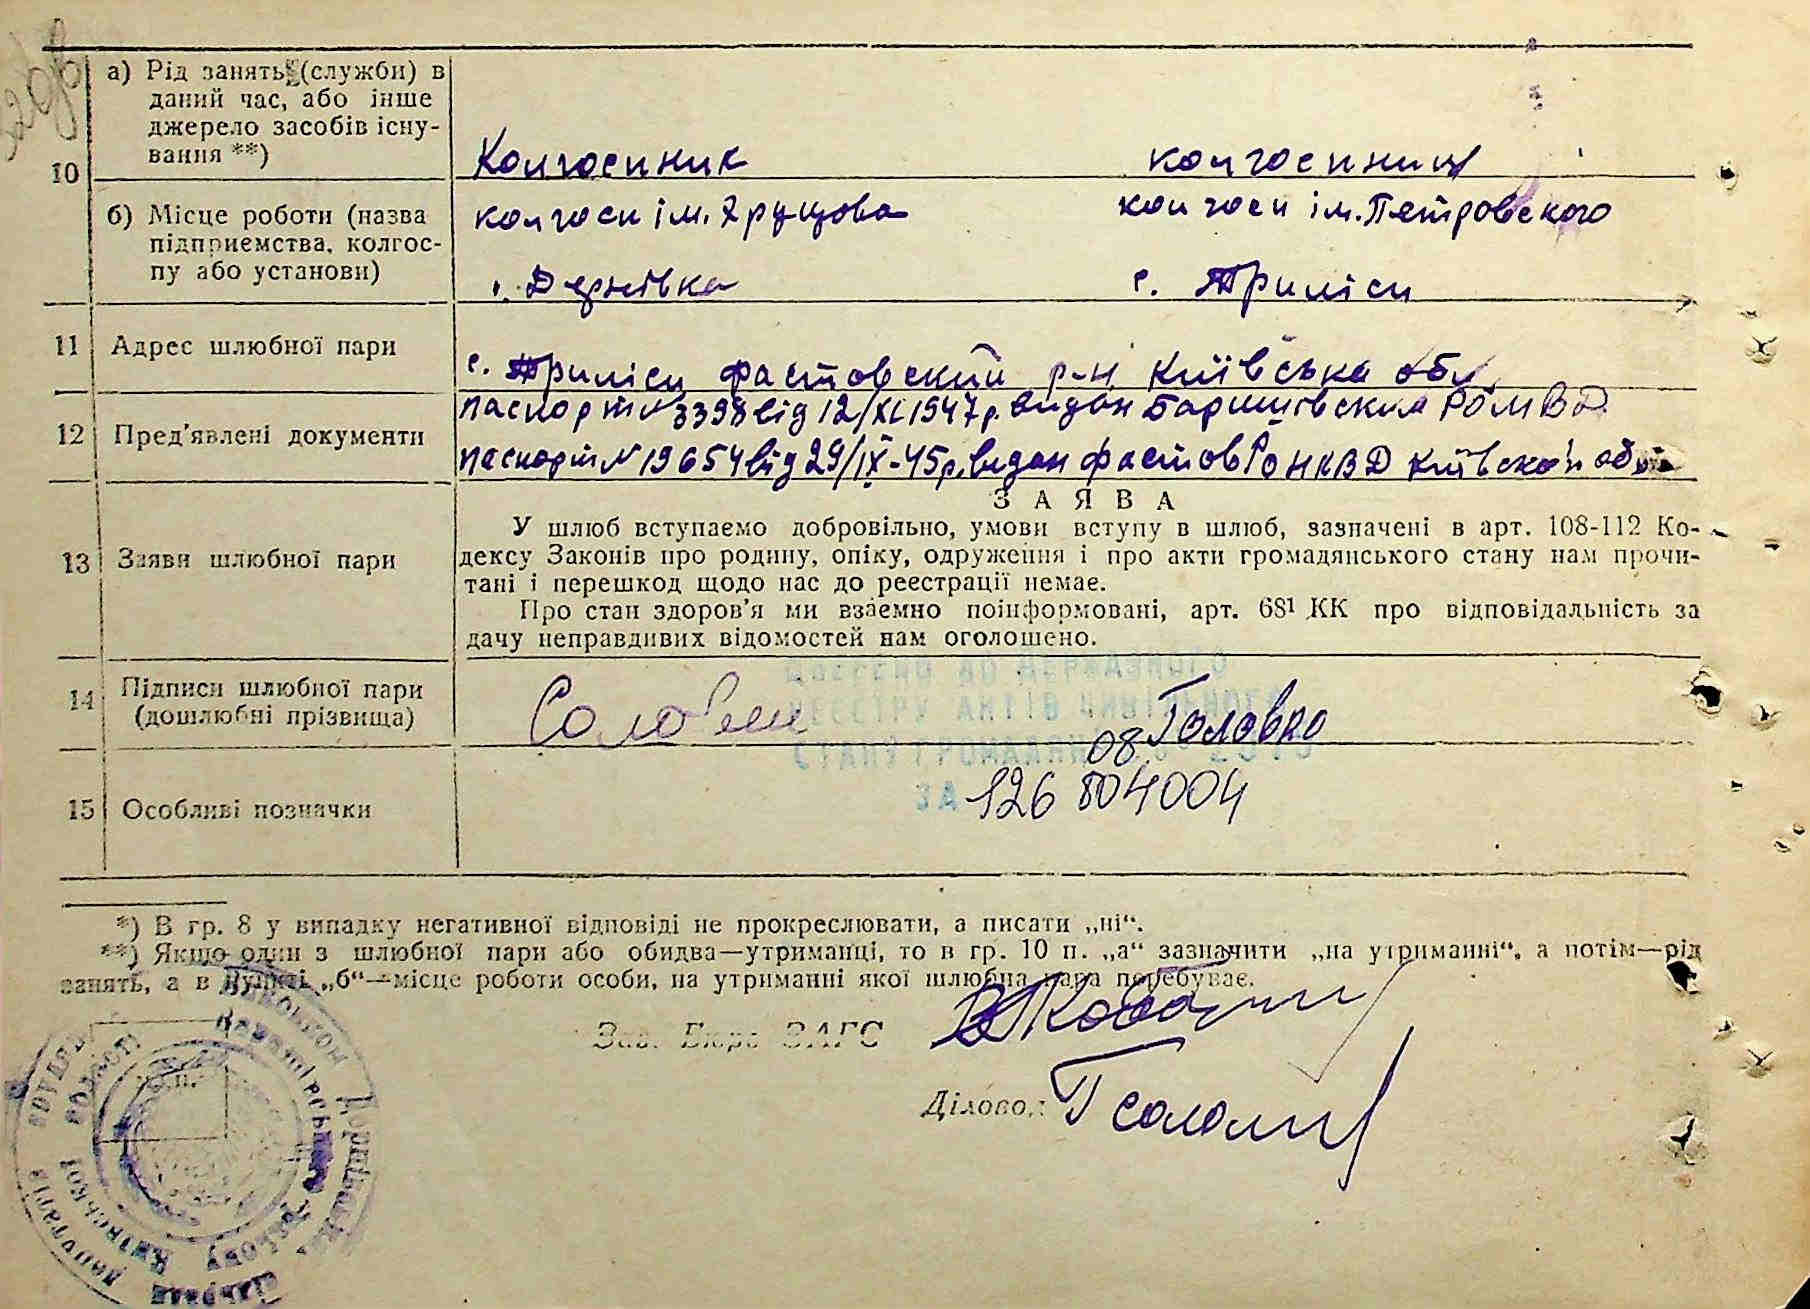 10
а) Рід занять (служби) в
даний час, або інше
джерело засобів існу-
вання **)
Колгоспник колгоспниця
б) Місце роботи (назва
підприємства, колгос-
пу або установи)
колгосп ім. Хрущова колгосп ім. Петровского
с. Дернівка с. Триліси
11 Адрес шлюбної пари
с. Триліси фастовский р-н Київська обл.
12 Пред'явлені документи
паспорт № 3398 від 12/XI 1947 р. видан Баришівским РОМВД
паспорт № 19654 від 29/IX-45 р. видан фастов РОНКВД Київской обл
ЗАЯВА
13 Заяви шлюбної пари
У шлюб вступаємо добровільно, умови вступу в шлюб, зазначені в арт. 108-112 Ко-
дексу Законів про родину, опіку, одруження і про акти громадянського стану нам прочи-
тані і перешкод щодо нас до реєстрації немає.
Про стан здоров'я ми взаємно поінформовані, арт. 68¹ КК про відповідальність за
дачу неправдивих відомостей нам оголошено.
ДО ДЕРЖАВНОГО
РЕЄСТРУ АКТІВ ЦИВІЛЬНОГО
СТАНУ ГРОМАДЯН
14 Підписи шлюбної пари
(дошлюбні прізвища)
Головко
08
ЗА 126 804004
15 Особливі позначки
*) В гр. 8 у випадку негативної відповіді не прокреслювати, а писати „ні“.
**) Якщо один з шлюбної пари або обидва—утриманці, то в гр. 10 п. „а“ зазначити „на утриманні“, а потім—рід
занять, а в пункті „б“—місце роботи особи, на утриманні якої шлюбна пара перебуває.
Зав. Бюро ЗАГС
Діловод
М.П.